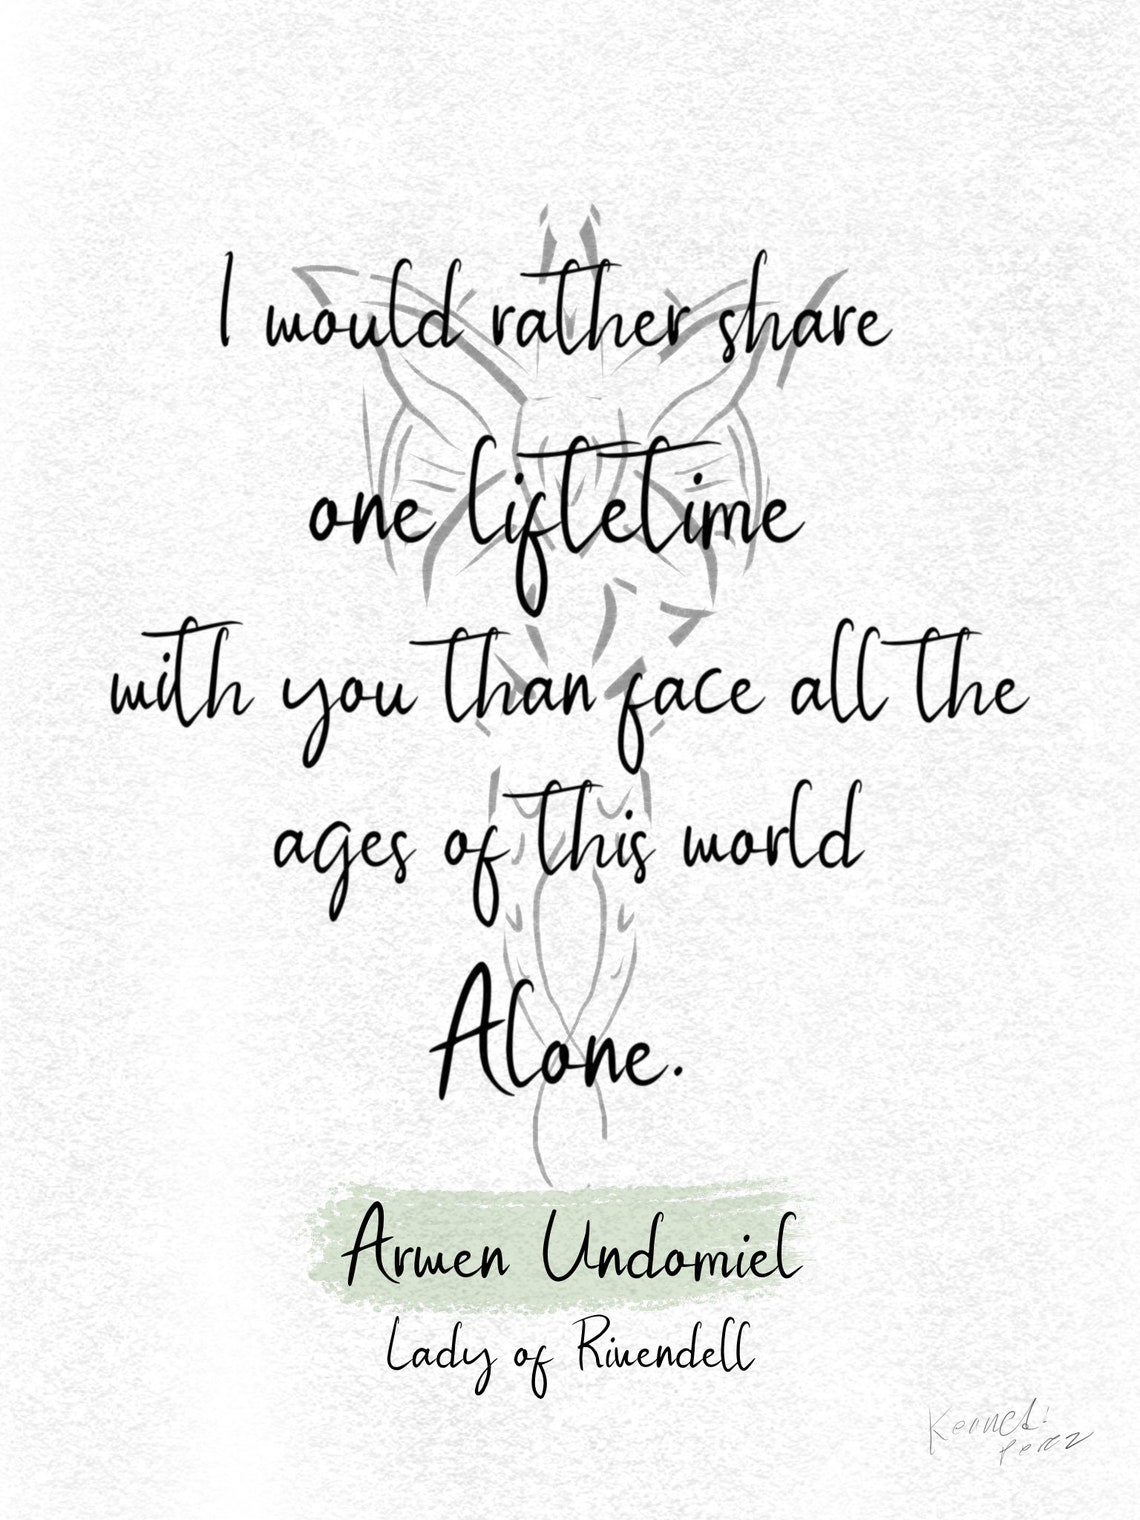 I would rather share
one liftetime
with you than face all the
ages of this world
Alone.
Arwen Undomiel
Lady of Rivendell